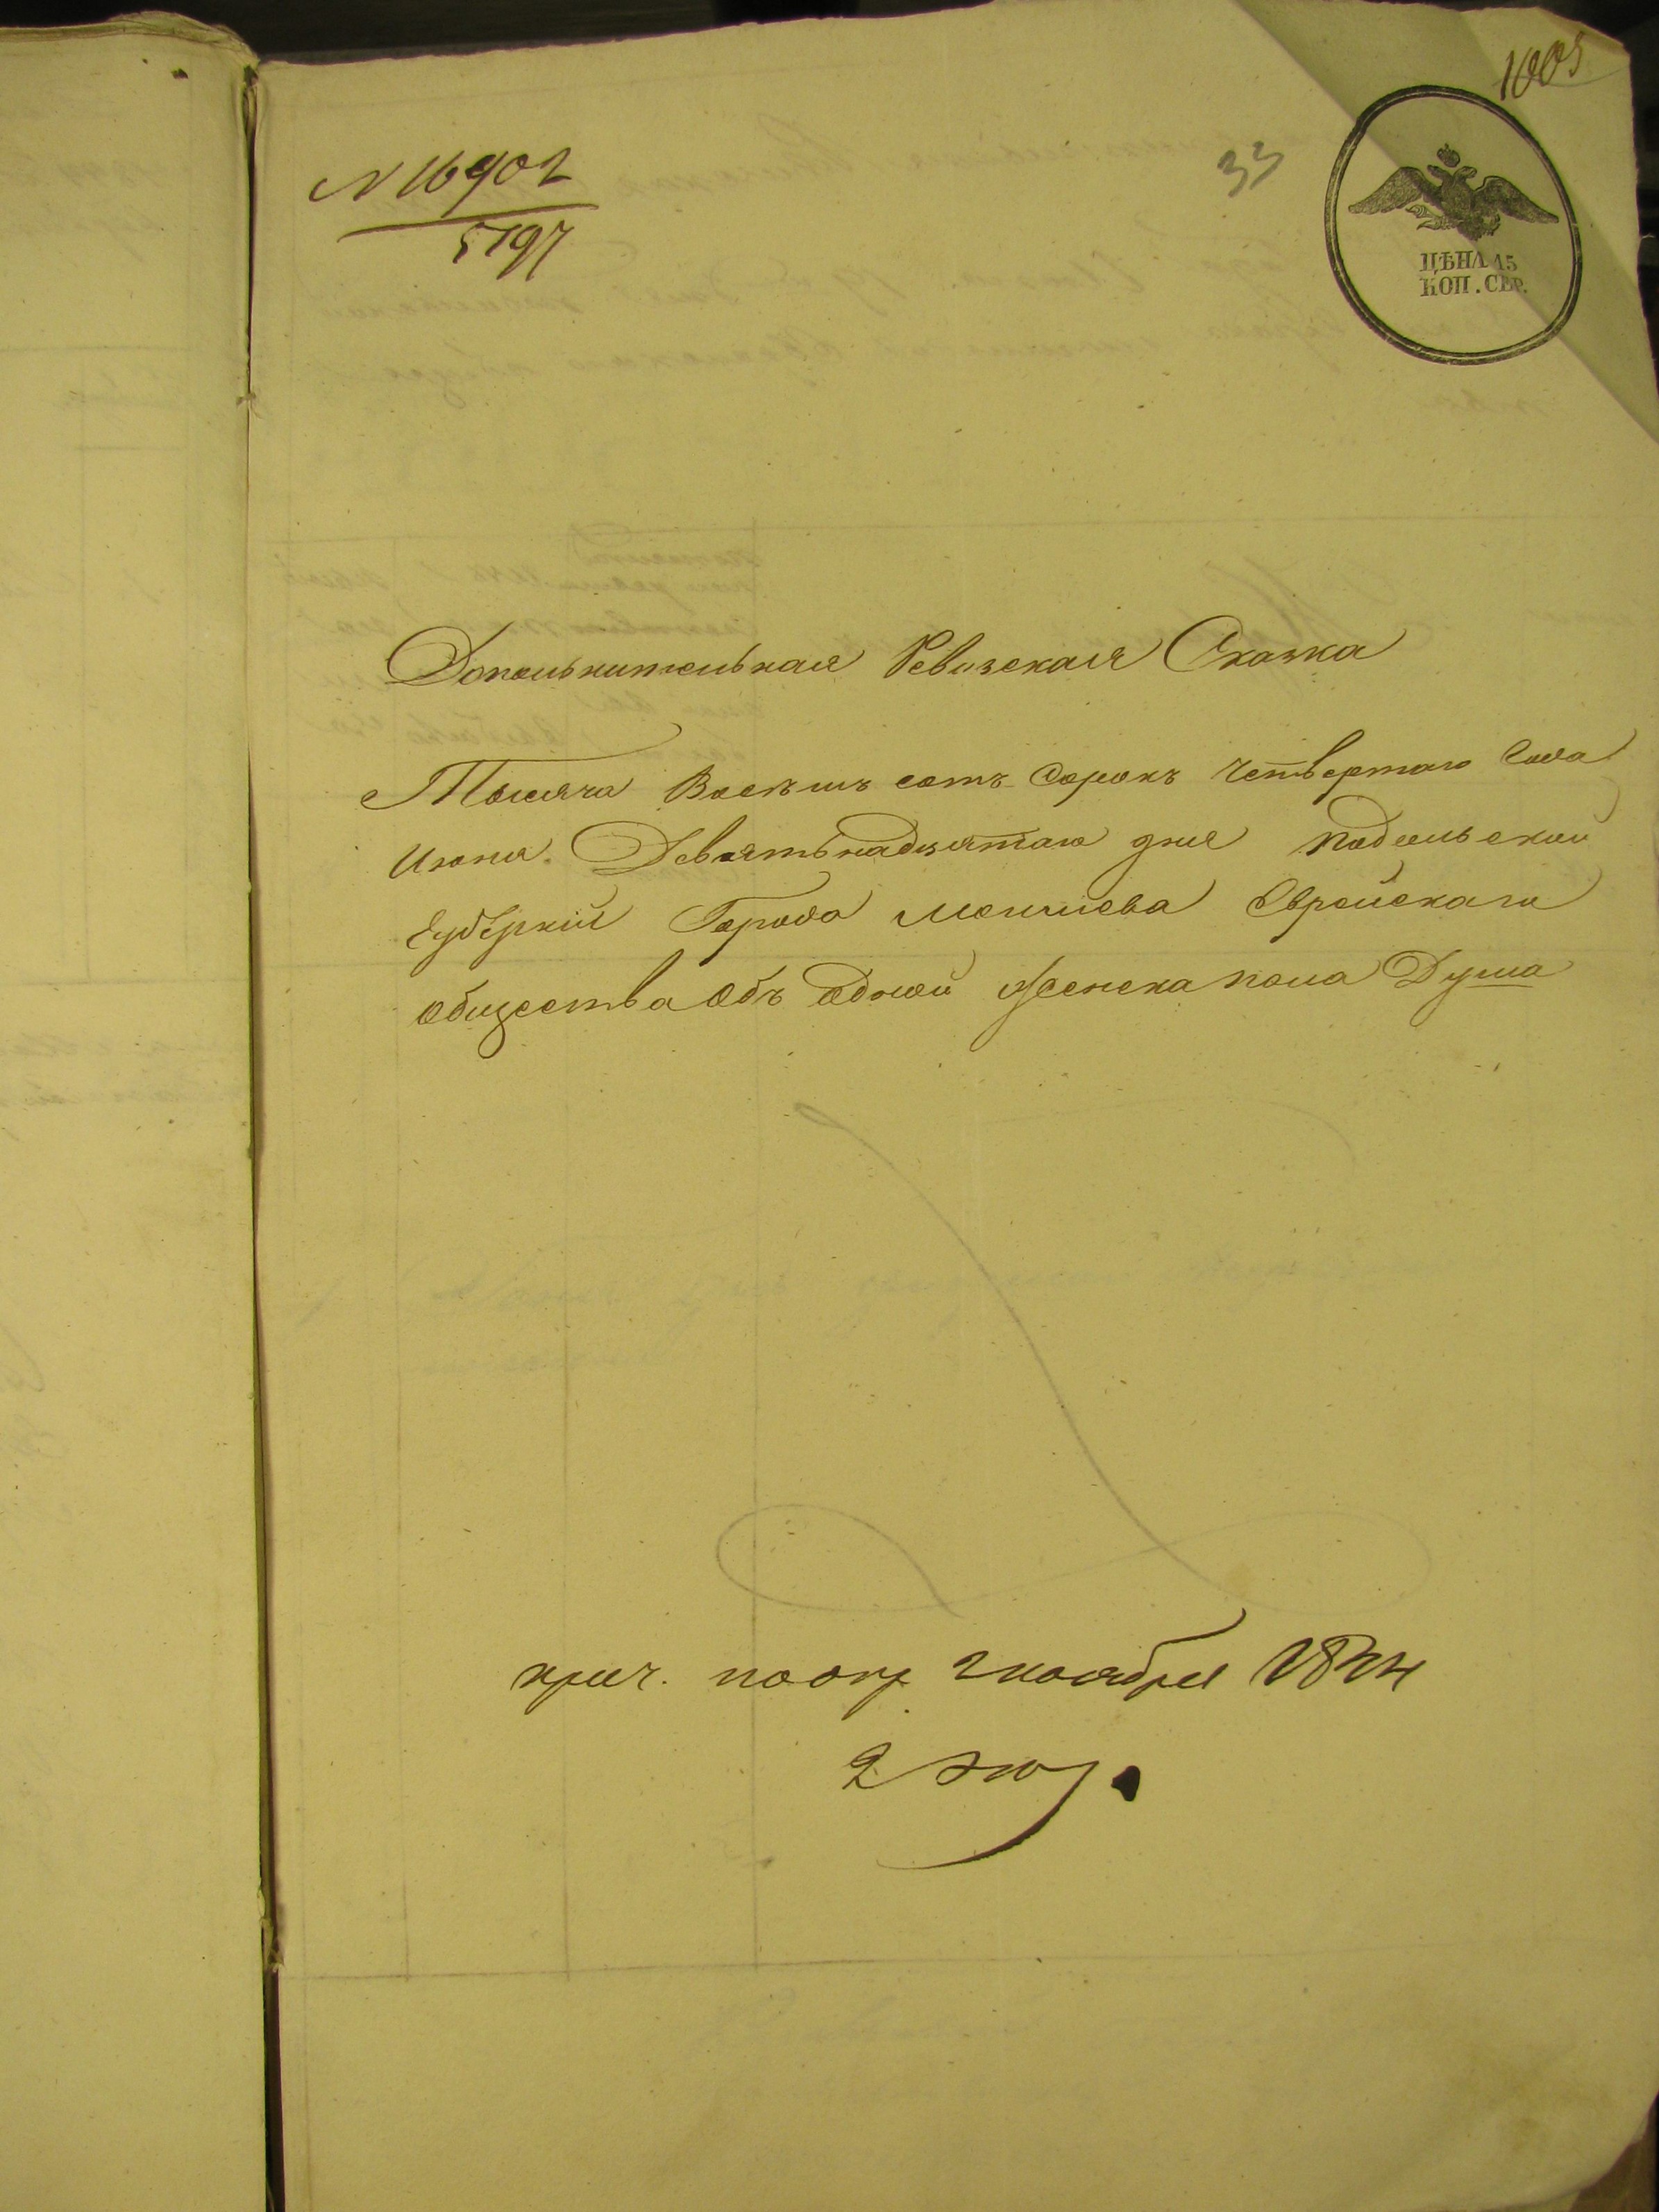 1005
33
N 16902
5797
ЦѢНА 15
КОП. СЕР.
Дополнительная Ревизская Сказка
Тысяча Восемь сотъ Сорокъ Четвертаго Года
Июня Девятьнадцятаго дня Подольской
Губерніи Города Еврейскаго
Общества Объ Одной Женска пола Душа
2 ноября 1844